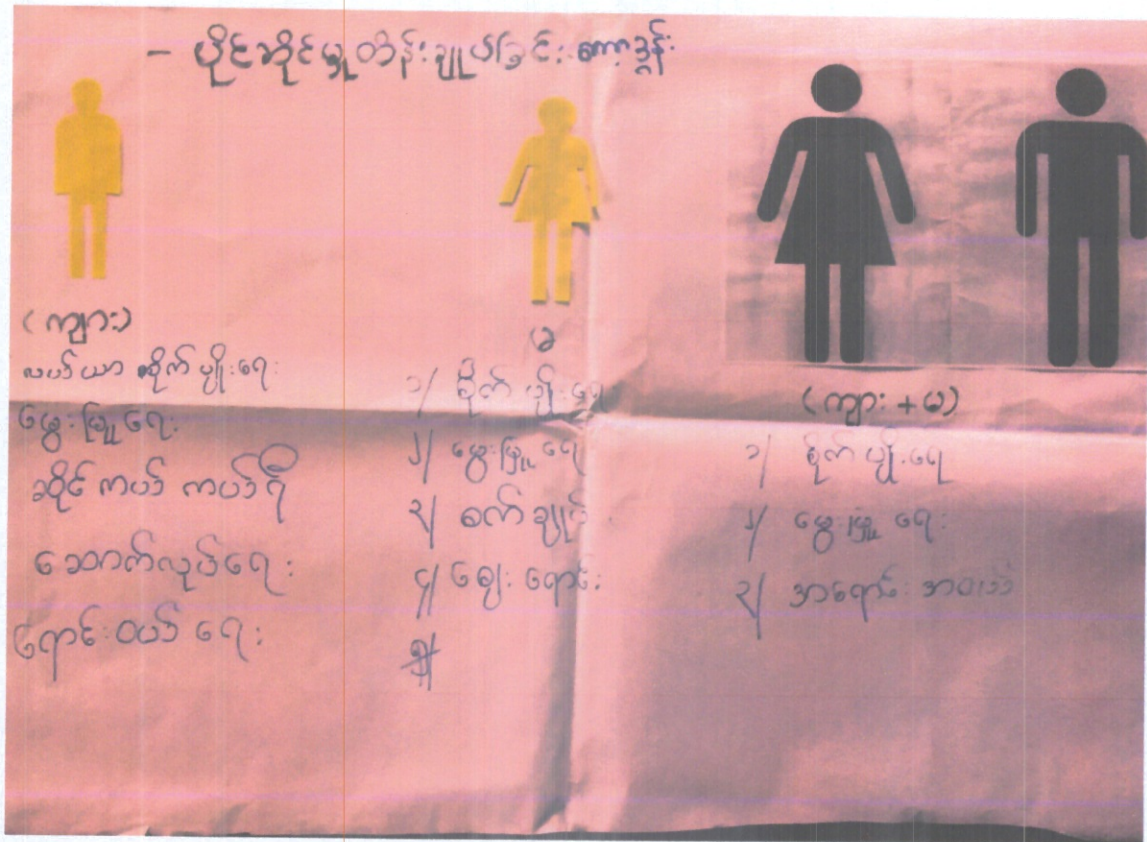 - ပိုင်ဆိုင်မှုထိန်းချုပ်ခြင်း
(ကျား)
လယ်ယာ စိုက်ပျိုးရေး
မွေးမြူရေး
ဆိုင်ကယ် ကယ်ရီ
ဆောက်လုပ်ရေး
ရောင်းဝယ်ရေး
မ
၁/ စိုက်ပျိုးရေး
၂/ မွေးမြူရေး
၃/ စက်ချုပ်
၄/ ဈေးရောင်း
(ကျား + မ)
၁/ စိုက်ပျိုးရေ
၂/ မွေးမြူရေး
၃/ အရောင်းအဝယ်